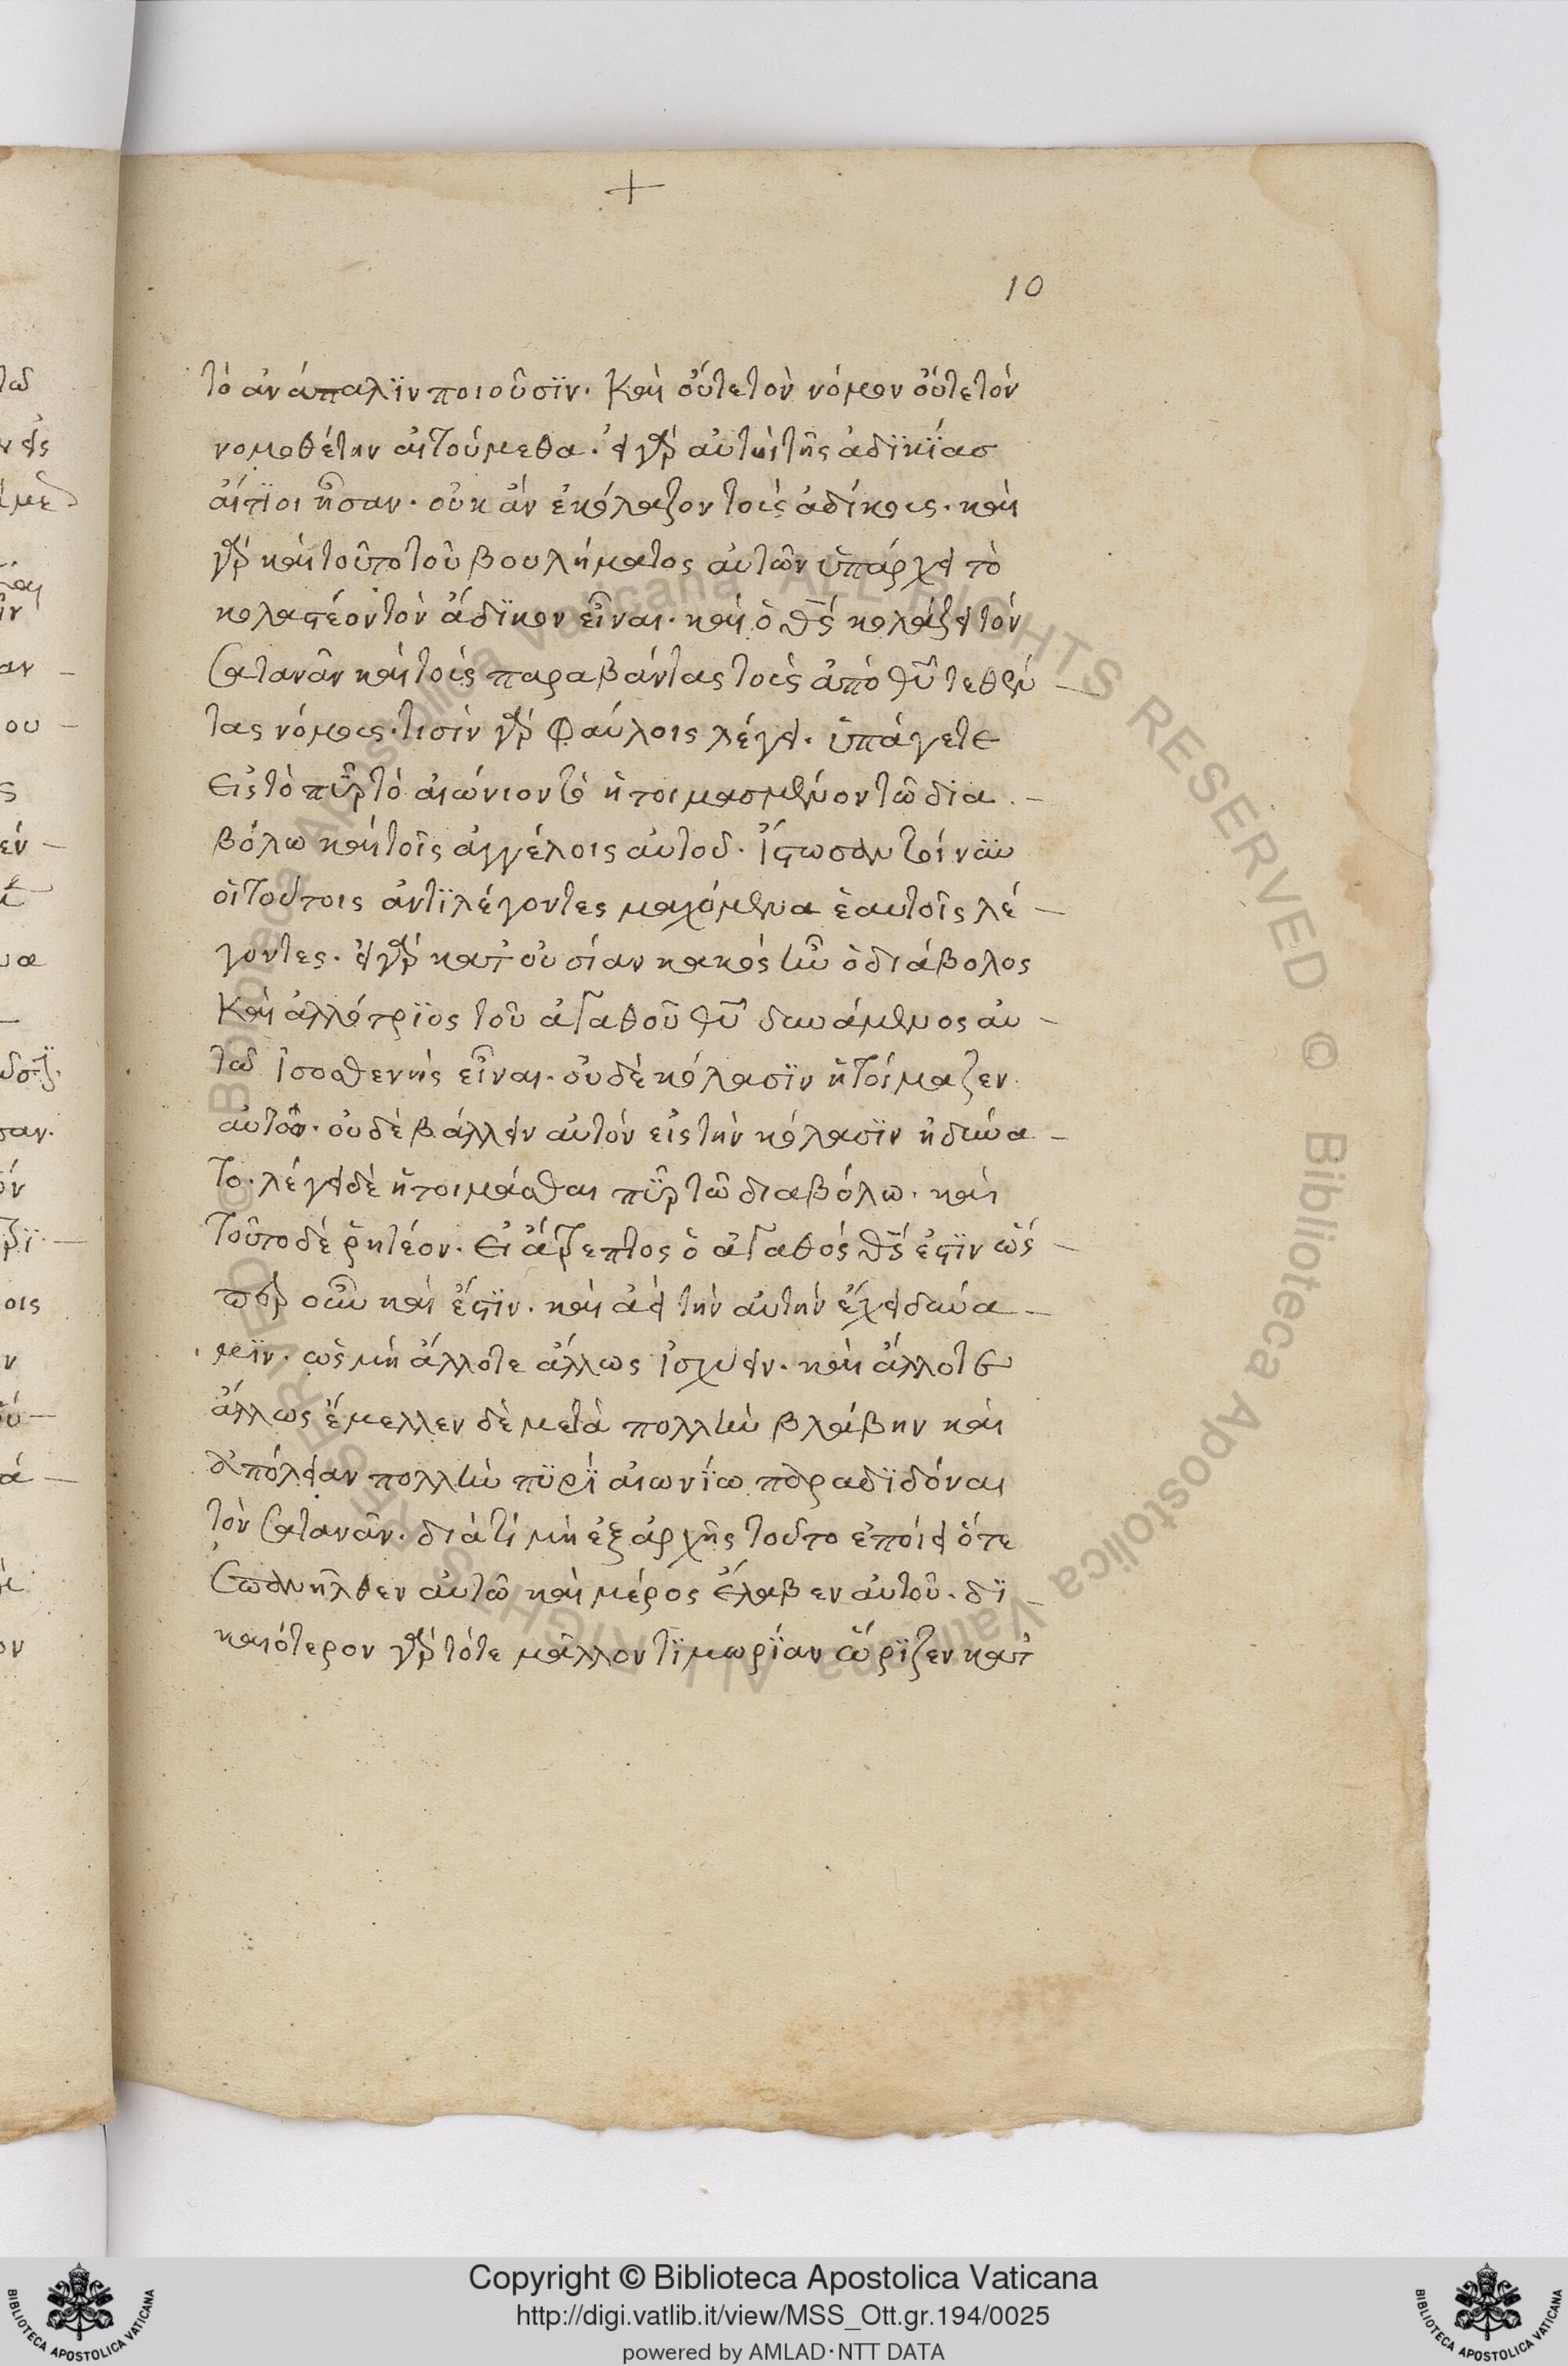 +
10
τὸ ἀνάπαλϊν ποιοῦσϊν. καὶ οὔτε τὸν νόμον οὔτε τὸν
νομοθέτην αἰτούμεθα. εἰ γὰρ αὐτοὶ τῆς ἀδϊκΐας
αἴτϊοι ἦσαν. οὐκ ἂν ἐκόλαζον τοὺς ἀδίκους. καὶ
γὰρ καὶ τοῦτο τοῦ βουλήματος αὐτῶν ὑπάρχει τὸ
κολαστέον τὸν ἄδϊκον εἶναι. καὶ ὁ θς κολάζει τὸν
Σατανᾶν καὶ τοὺς παραβάντας τοὺς ἀπὸ θυ τεθέν –
τας νόμους. τισὶν γὰρ φαύλοις λέγει. ὑπάγετε
εἰς τὸ πῦρ τὸ αἰώνιον τὸ ἡτοιμασμένον τῶ δια –
βόλω καὶ τοῖς ἀγγέλοις αὐτοῦ. ἴστωσαν τοίνϋν
οἱ τούτοις ἀντϊλέγοντες μαχόμενα ἑαυτοῖς λέ –
γοντες. εἰ γὰρ κατ' οὐσίαν κακὸς ἦν ὁ διάβολος
καὶ ἀλλότρϊος τοῦ ἀγαθοῦ θυ δυνάμενος αὐ –
τῶ ἰσοσθενὴς εἶναι. οὐδὲ κόλασϊν ἡτοίμαζεν
αὐτῶ. οὐδὲ βάλλειν αὐτὸν εἰς τὴν κόλασϊν ἠδύνα –
το. λέγει δὲ ἡτοιμάσθαι πῦρ τῶ διαβόλω. καὶ
τοῦτο δὲ ῥητέον. εἰ ἄτρεπτος ὁ ἀγαθὸς θς ἐστϊν ὥσ –
περ οὖν καὶ ἔστϊν. καὶ ἀεὶ τὴν αὐτὴν ἔχει δύνα –
μϊν. ὡς μὴ ἄλλοτε ἄλλως ἰσχύειν. καὶ ἄλλοτε
ἄλλως ἔμελλεν δὲ μετὰ πολλὴν βλάβην καὶ
ἀπόλειαν πολλὴν πϋρῒ αἰωνΐω παραδϊδόναι
τὸν Σατανᾶν. διὰ τί μὴ ἐξ ἀρχῆς τοῦτο ἐποίει ὅτε
ἐπανῆλθεν αὐτῶ καὶ μέρος ἔλαβεν αὐτοῦ. δϊ –
καιότερον γὰρ τότε μᾶλλον τϊμωρΐαν ὥρϊζεν κατ'
Copyright © Biblioteca Apostolica Vaticana
http://digi.vatlib.it/view/MSS_Ott.gr.194/0025
powered by AMLAD·NTT DATA